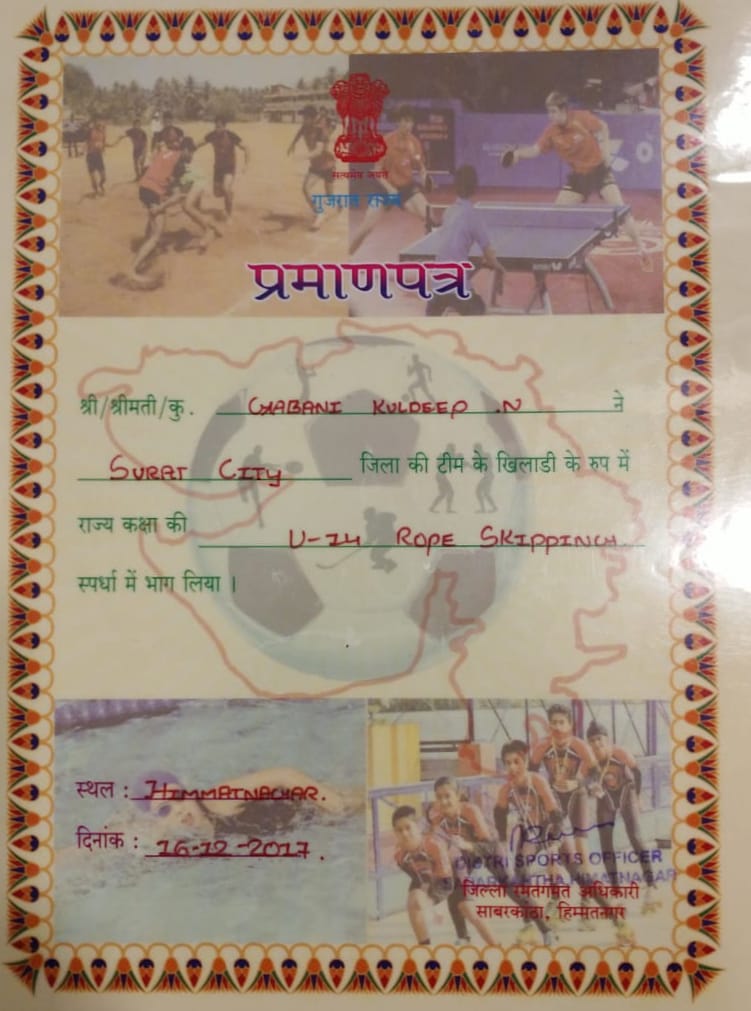 सत्यमेव जयते
गुजरात राज्य
प्रमाणपत्र
श्री/श्रीमती/कु. CHABANI KULDEEP .N ने
SURAT CITY जिला की टीम के खिलाडी के रुप में
राज्य कक्षा की U-14 ROPE SKIPPING
स्पर्धा में भाग लिया ।
स्थल : HIMMATNAGAR.
दिनांक : 16-12-2017.
DISTRI SPORTS OFFICER
SABARKANTHA HIMATNAGAR
जिल्ला रमतगमत अधिकारी
साबरकांठा, हिम्मतनगर